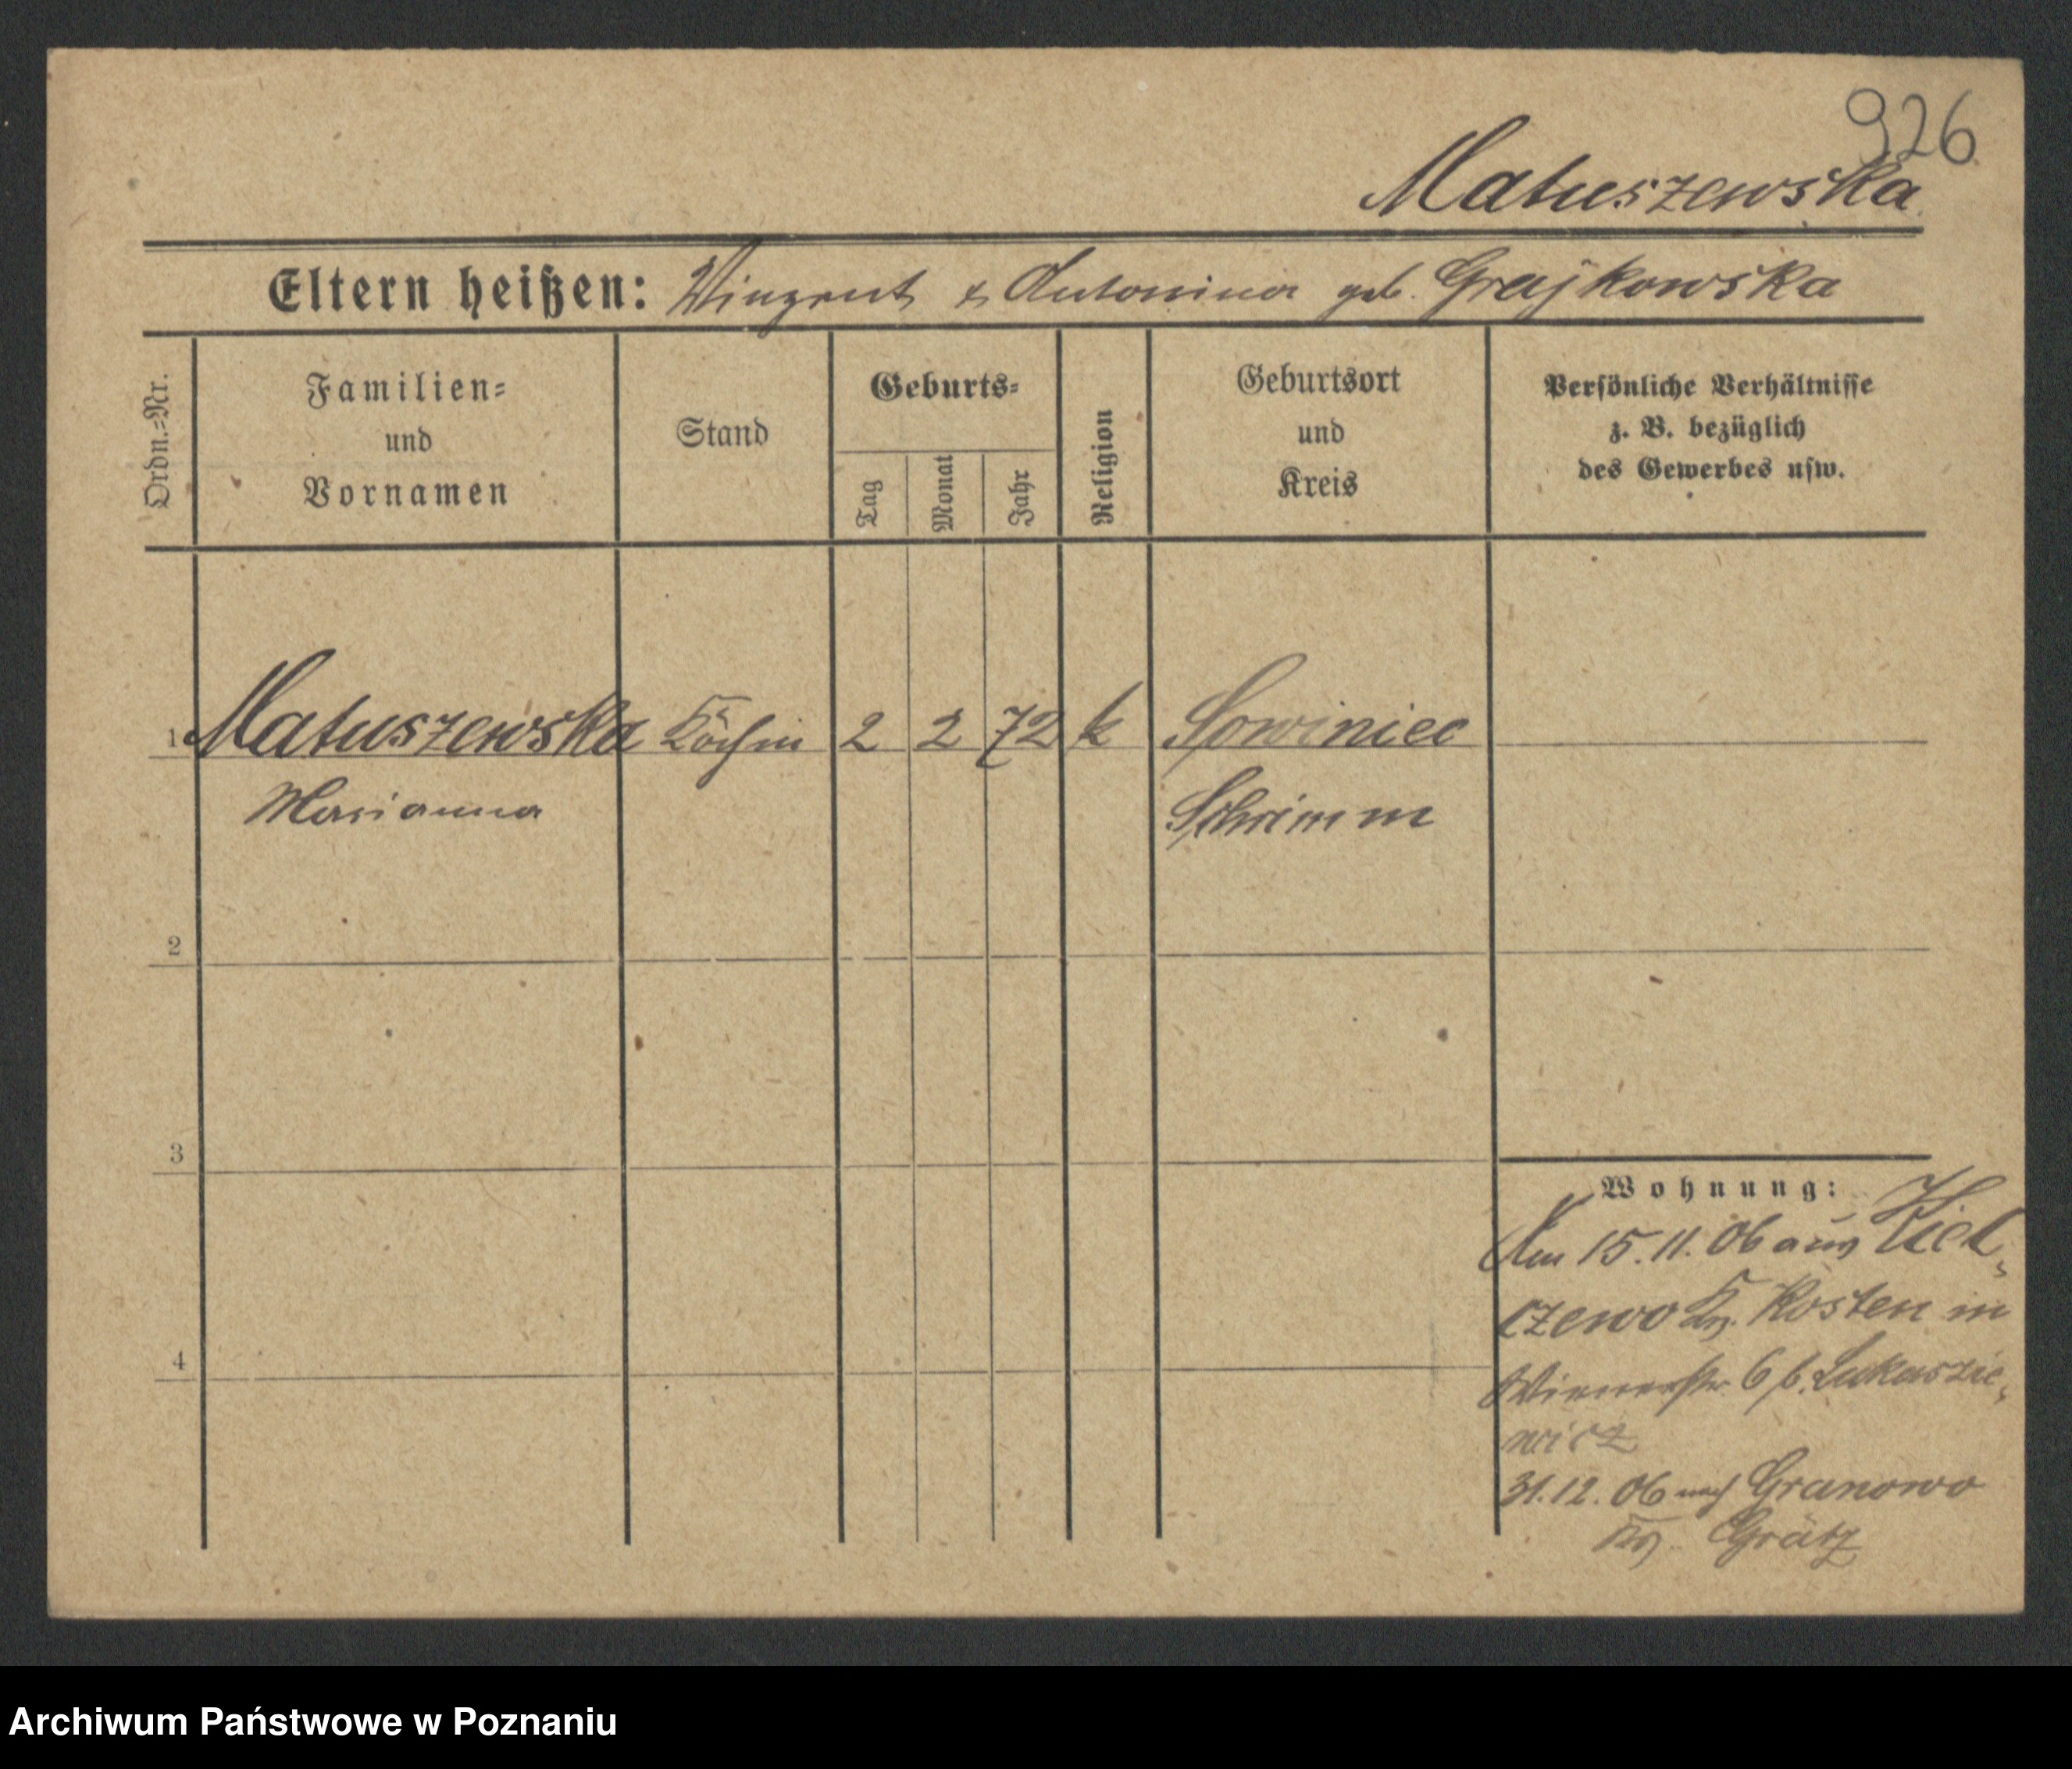 926
Matuszewska
Eltern heißen: Winzent & Antonina geb. Grajkowska
Ordn.-Nr.
Familien-
und
Vornamen
Stand
Geburts-
Tag
Monat
Jahr
Religion
Geburtsort
und
Kreis
Persönliche Verhältnisse
z. B. bezüglich
des Gewerbes usw.
1 Matuszewska Köchin 2 2 72 k Sowiniec
Marianna Schrimm
2
3
4
Wohnung:
Am 15.11.06 aus Kiel-
czewo Kr. Kosten in
Wienerstr. 6 b. Lukaszie-
wicz
31.12.06 nach Granowo
Kr. Grätz
Archiwum Państwowe w Poznaniu